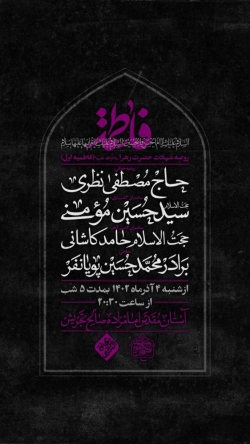 فاطمة
روضه شهادت حضرت زهرا (فاطمیه اول)
حاج مصطفی نظری
حجت‌الاسلام سید حسین مؤمنی
حجت الاسلام حامد کاشانی
برادر محمد حسین پویانفر
از شنبه ۴ آذر ماه ۱۴۰۲ بمدت ۵ شب
از ساعت ۲۰:۳۰
آستان مقدس امامزاده صالح تجریش